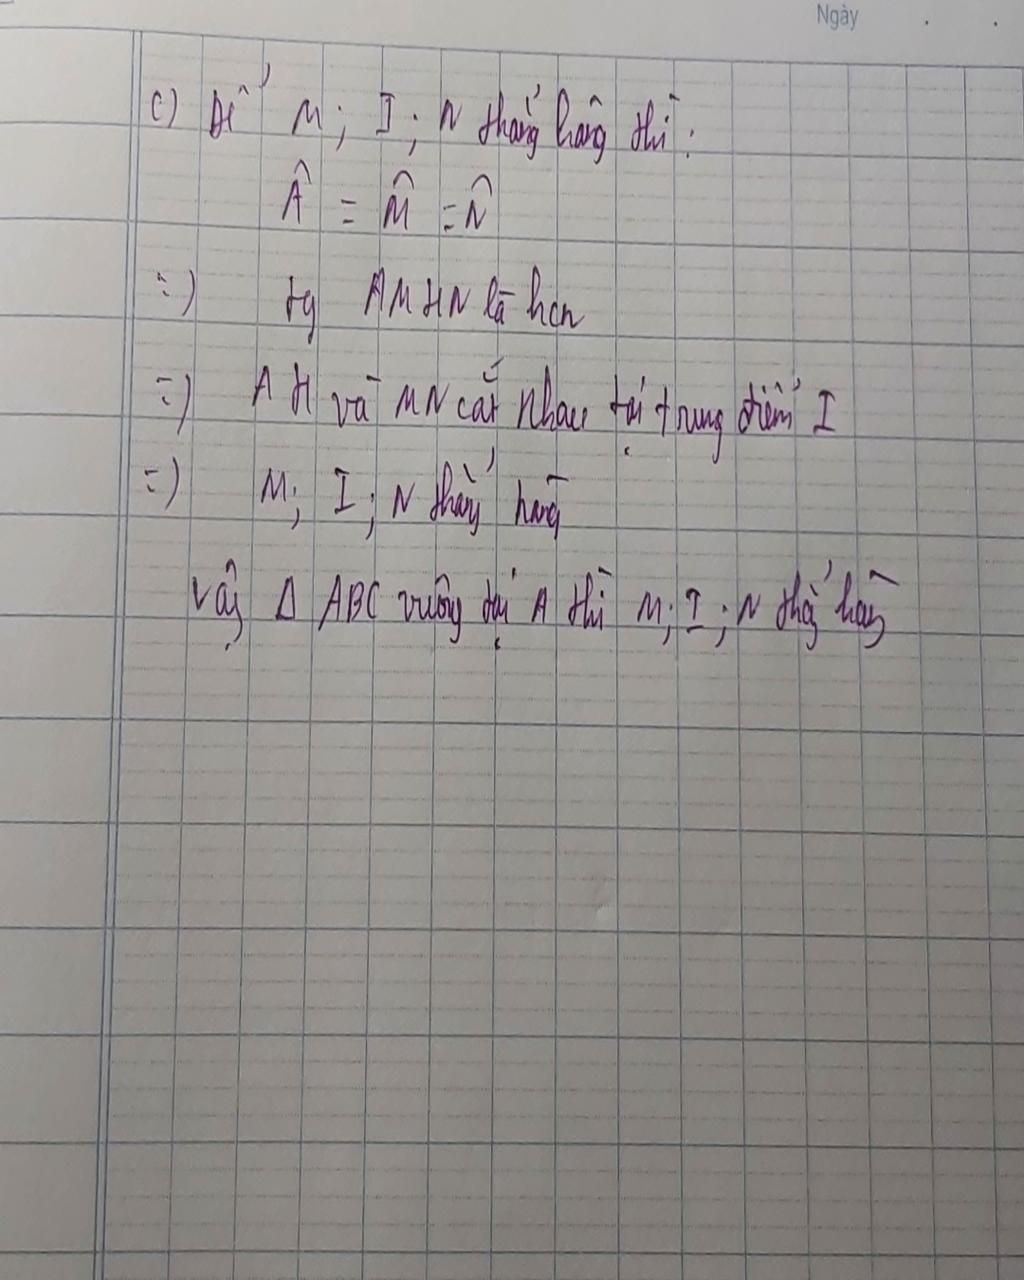 Ngày . .
c) Để M; I; N thẳng hàng thì:
Â = M̂ = N̂
=) tg AMHN là hcn
=) AH và MN cắt nhau tại trung điểm I
=) M; I; N thẳng hàng
Vậy Δ ABC vuông tại A thì M; I; N thẳng hàng